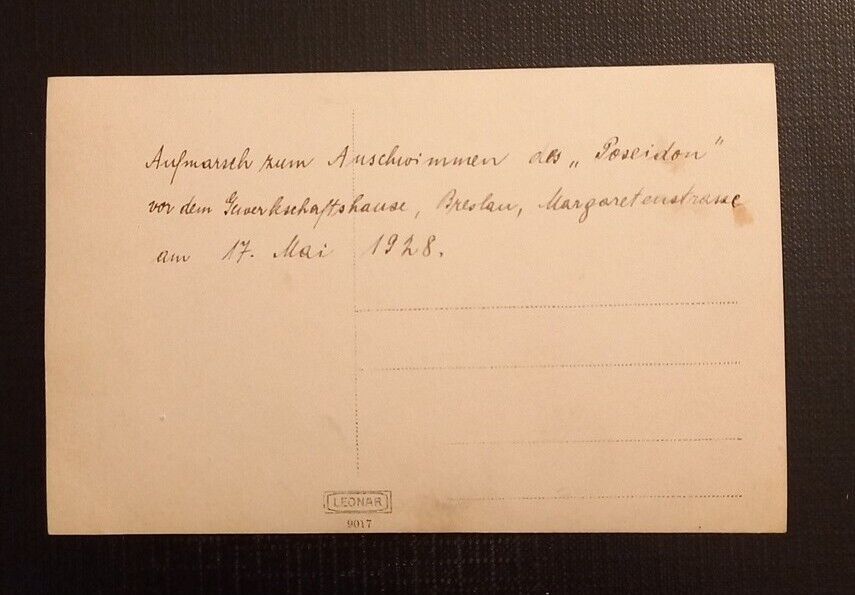 Aufmarsch zum Anschwimmen des „Poseidon"
vor dem Gewerkschaftshause, Breslau, Margaretenstrasse
am 17. Mai 1928.
LEONAR
9017